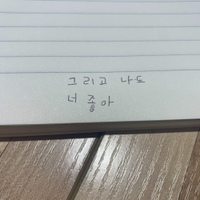 그리고 나도
너 좋아